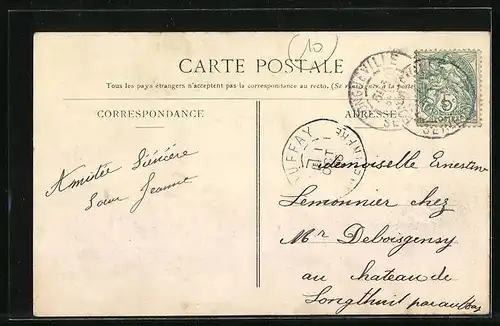 10
CARTE POSTALE
Tous les pays étrangers n'acceptent pas la correspondance au recto. (Se renseigner à la poste
CORRESPONDANCE
ADRESSE
LONGUEVILLE
AUFFAY
5
Amitiée Sincère
Sœur Jeanne
demoiselle Ernestine
Lemonnier chez
Mr Deboisgensy
au chateau de
Longthuit par